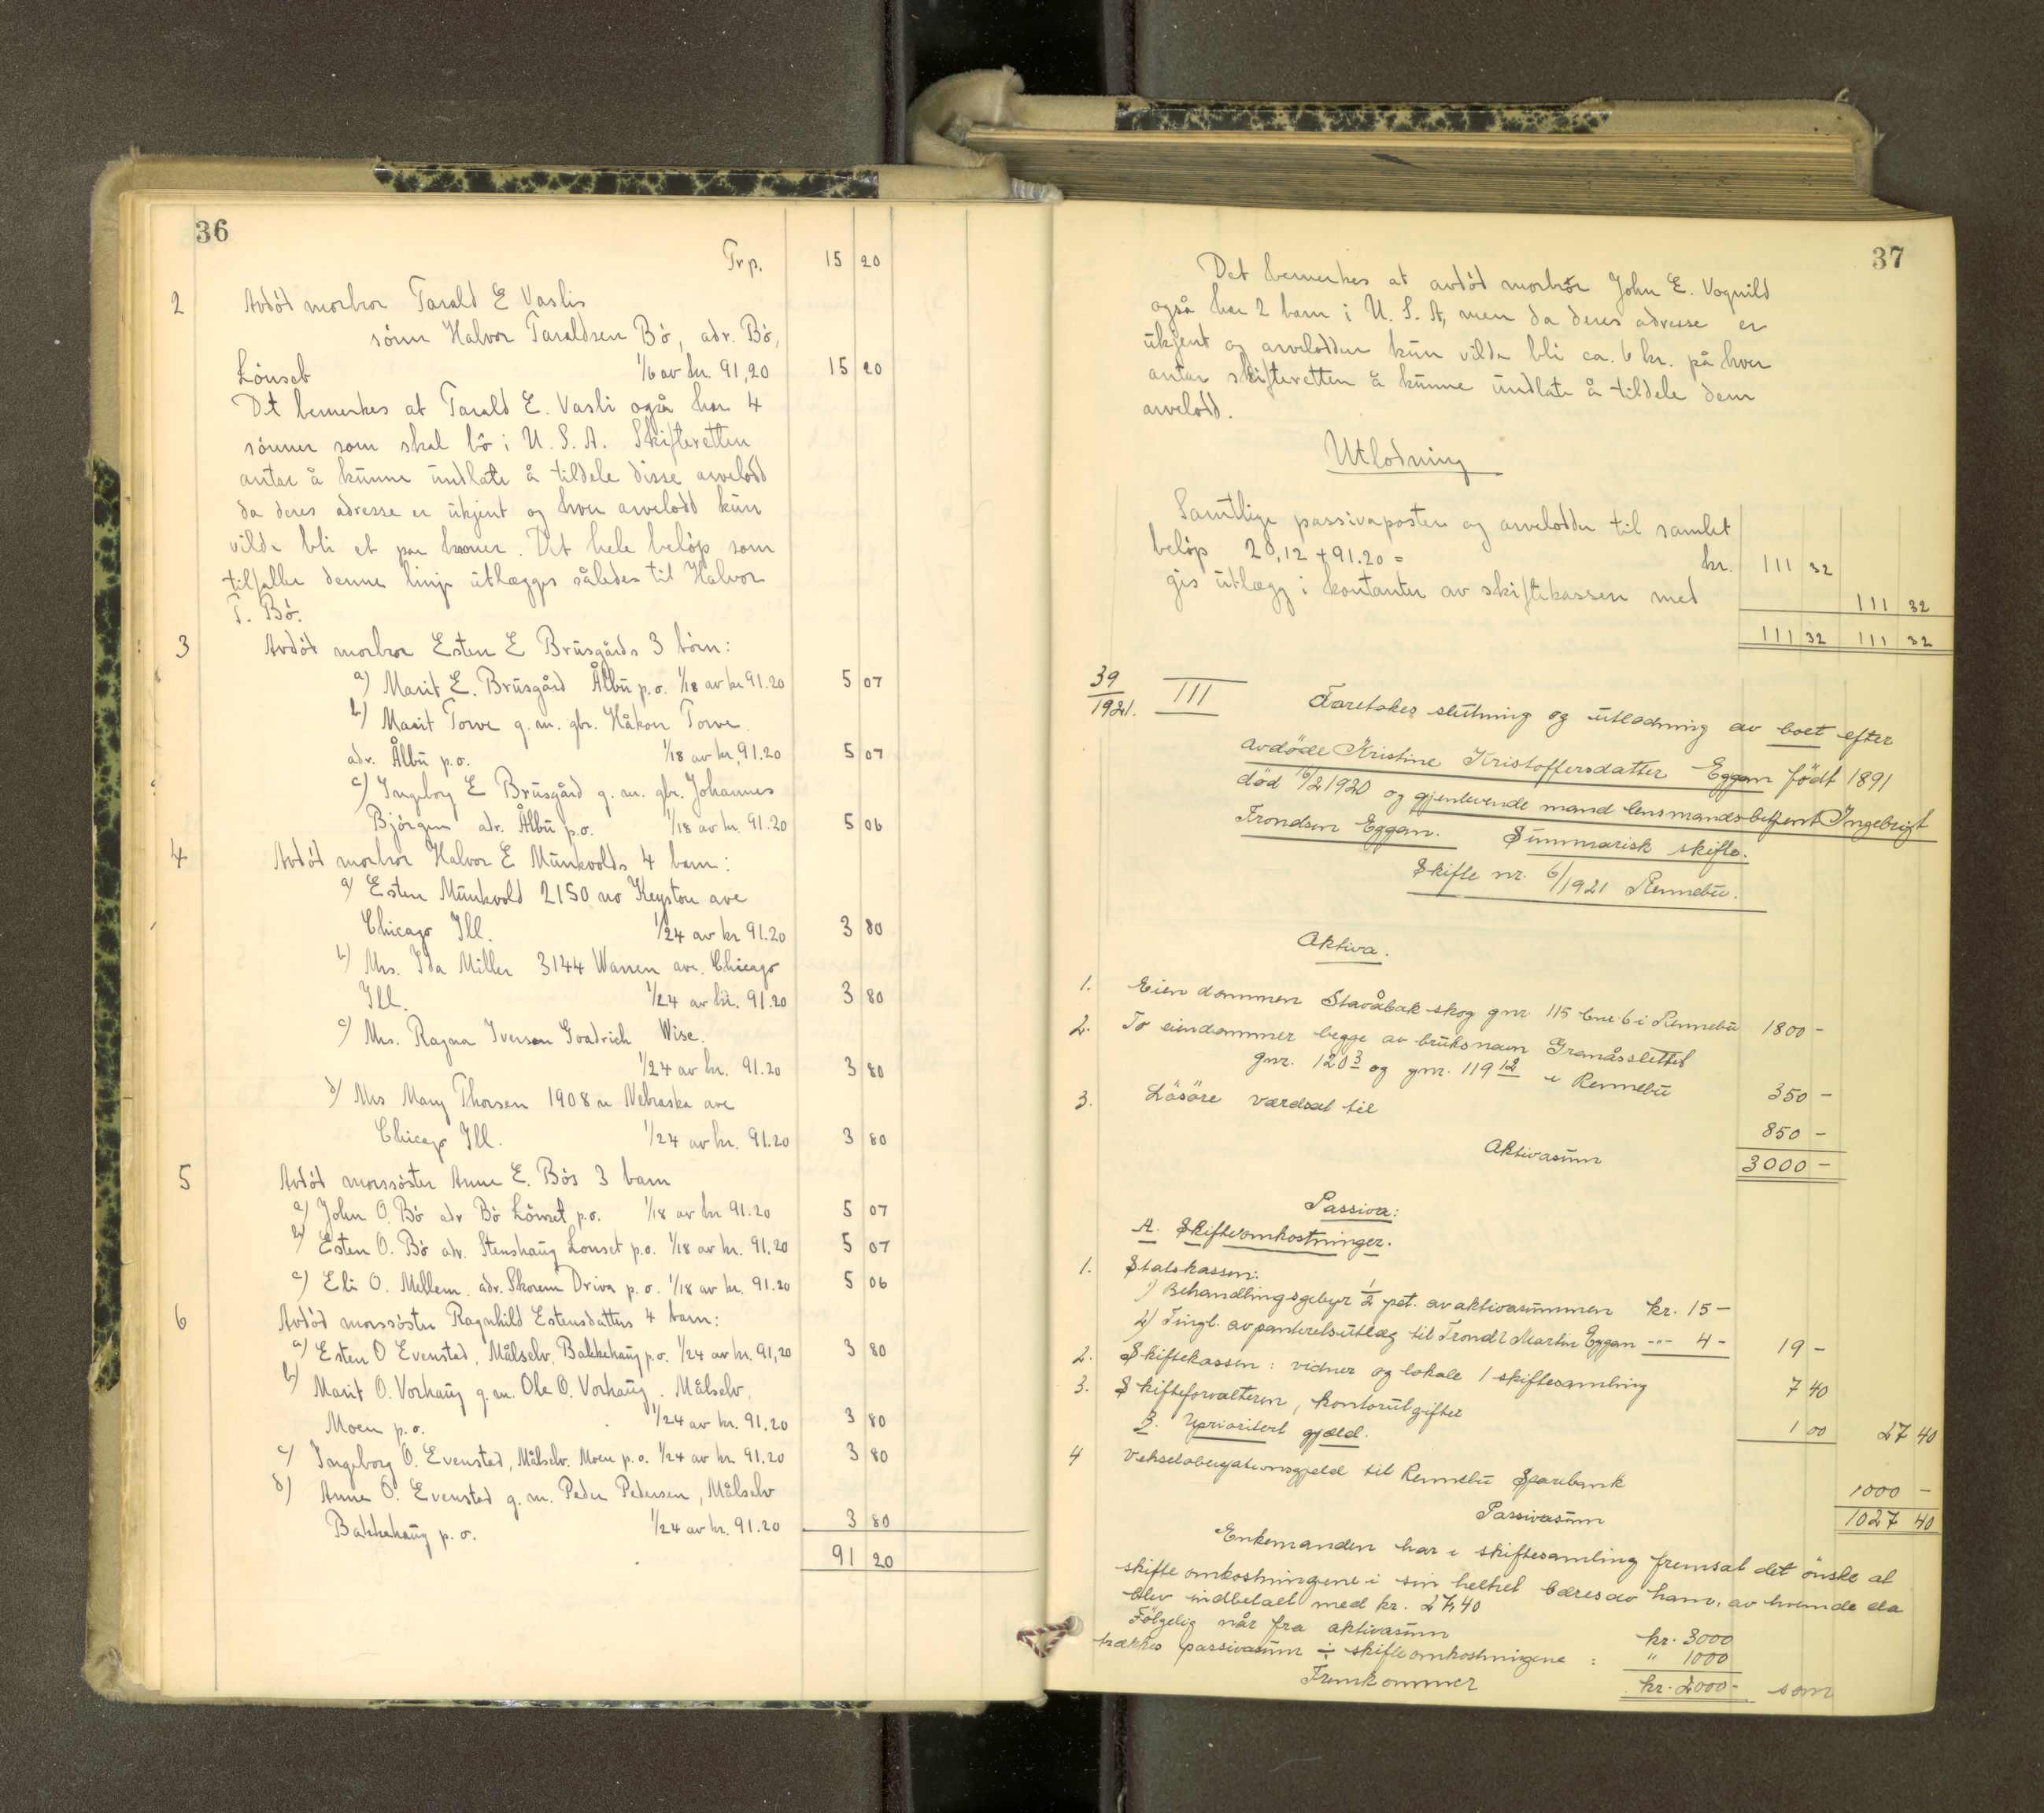 36
Trp. 15 20
2 Avdöd morbror Tarald E Vaslis
sönn Halvor Taraldsen Bö, adr. Bö,
Lönset 1/6 av kr. 91,20 15 20
Det bemerkes at Tarald E. Vasli også har 4
sönner som skal bo i U. S. A. Skifteretten
antar å kunne undlate å tildele disse arvelodd
da deres adresse er ukjent og hver arvelodd kun
vilde bli et par kroner. Det hele belöp som
tilfaller denne linje utlægges således til Halvor
T. Bö.
3 Avdöd morbror Esten E Brusgårds 3 börn:
a) Marit E. Brusgård Ålbu p.o. 1/18 av kr 91.20 5 07
b) Marit Torve g. m. gbr. Håkon Torve
adr. Ålbu p.o. 1/18 av kr. 91.20 5 07
c) Ingeborg E Brusgård g. m. gbr. Johannes
Björgen adr. Ålbu p.o. 1/18 av kr. 91.20 5 06
4 Avdöd morbror Halvor E Munkvolds 4 barn:
a) Esten Munkvold 2150 no Keyston ave
Chicago Ill. 1/24 av kr 91.20 3 80
b) Mrs. Ida Miller 3144 Warren ave. Chicago
Ill. 1/24 av kr. 91.20 3 80
c) Mrs. Ragna Iverson Goodrich Wise.
1/24 av kr. 91.20 3 80
d) Mrs Mary Thorsen 1908 n Nebraska ave
Chicago Ill. 1/24 av kr. 91.20 3 80
5 Avdöd morssöster Anne E. Bös 3 barn
a) John O. Bö adr Bö Lönset p.o. 1/18 av kr 91.20 5 07
b) Esten O. Bö adr. Stenshaug Lonset p.o. 1/18 av kr. 91,20 5 07
c) Eli O. Mellem. adr. Skorem Driva p. o. 1/18 av kr. 91.20 5 06
6 Avdöd morssöster Ragnhild Estensdatters 4 barn:
a) Esten O Evenstad, Målselv, Bakkehaug p.o. 1/24 av kr. 91,20 3 80
b) Marit O. Vorhaug g. m. Ole O. Vorhaug. Målselv.
Moen p.o. 1/24 av kr. 91.20 3 80
c) Ingeborg O. Evenstad, Målselv. Moen p.o. 1/24 av kr. 91.20 3 80
d) Anne O. Evenstad g. m. Peder Pedersen, Målselv
Bakkehaug p. o. 1/24 av kr. 91.20 3 80
91 20
37
Det bemerkes at avdöd morbror John E. Vognild
også har 2 barn i U. S. A, men da deres adresse er
ukjent og arvelodden kun vilde bli ca. 6 kr. på hver
antar skifteretten å kunne undlate å tildele dem
arvelodd.
Utlodning
Samtlige passivaposter og arvelodder til samlet
belöp 20,12 + 91.20 = kr. 111 32
gis utlægg i kontanter av skiftekassen med 111 32
111 32 111 32
39/1921. III Foretokes slutning og utlodning av boet efter
avdöde Kristine Kristoffersdatter Eggan födt 1891
död 16/2 1920 og gjenlevende mand lensmandsbetjent Ingebrigt
Trondsen Eggan. Summarisk skifte.
Skifte nr. 6/1921 Rennebu.
Aktiva.
1. Eiendommen Stavåbak skog gnr. 115 bnr. 6 i Rennebu 1800 -
2. To eiendommer begge av bruksnavn Granåsslettet
gnr. 120 3 og gnr. 119 12 i Rennebu 350 -
3. Lösöre værdsat til 850 -
Aktivasum 3000 -
Passiva:
A. Skifteomkostninger.
1. Statskassen:
1) Behandlingsgebyr 1/2 pct. av aktivasummen kr. 15 -
2) Tingl. av panteretsutlæg til Trond & Martin Eggan -"- 4 - 19 -
2. Skiftekassen: vidner og lokale 1 skiftesamling 7 40
3. Skifteforvalteren, kontorutgifter 1 00 27 40
B. Uprioritert gjæld.
4 Vekselobligationsgjeld til Rennebu Sparebank 1000 -
Passivasum 1027 40
Enkemanden har i skiftesamling fremsat det önske at
skifteomkostningene i sin helhet bæres av ham, av hvem de da
blev indbetalt med kr. 27,40
Fölgelig når fra aktivasum kr. 3000
trækkes passivasum ÷ skifteomkostningene : " 1000
Fremkommer kr. 2000 - som